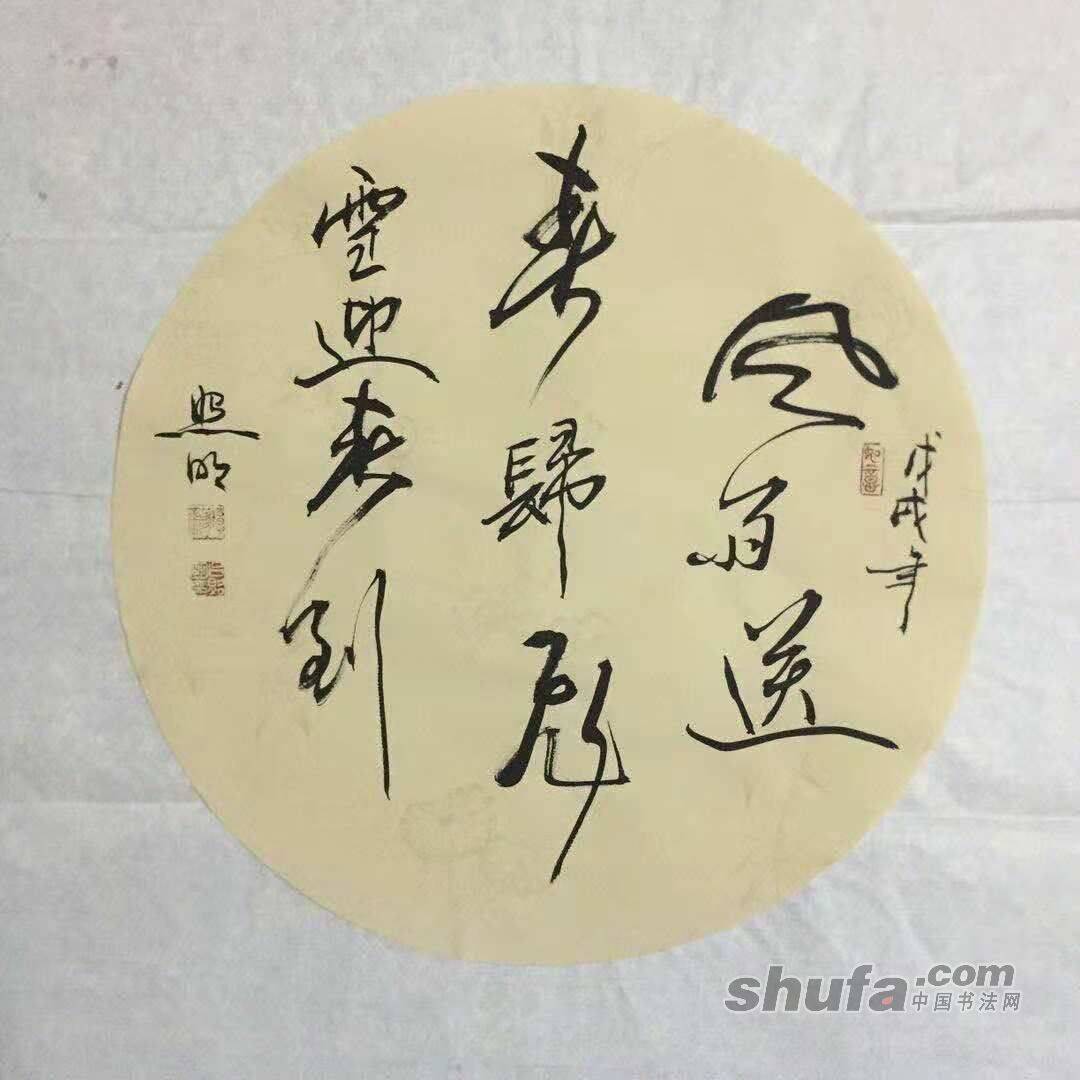 戊戌年
如意
风雨送
春歸飛
雪迎春到
照明
shufa.com
中国书法网